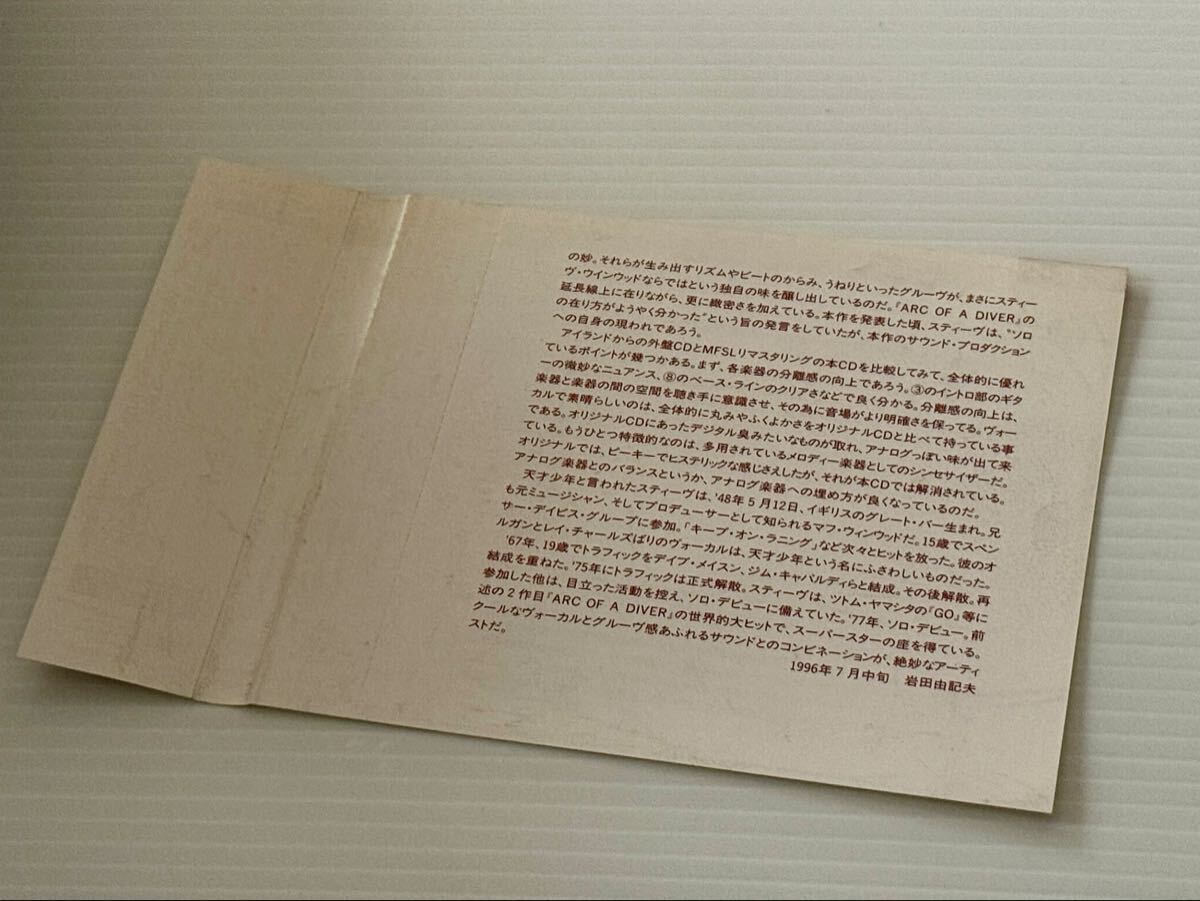 の妙。それらが生み出すリズムやビートのからみ、うねりといったグルーヴが、まさにスティー
ヴ・ウインウッドならではという独自の味を醸し出しているのだ。『ARC OF A DIVER』の
延長線上に在りながら、更に緻密さを加えている。本作を発表した頃、スティーヴは、“ソロ
の在り方がようやく分かった”という旨の発言をしていたが、本作のサウンド・プロダクション
への自身の現われであろう。
アイランドからの外盤CDとMFSLリマスタリングの本CDを比較してみて、全体的に優れ
ているポイントが幾つかある。まず、各楽器の分離感の向上であろう。③のイントロ部のギタ
ーの微妙なニュアンス、⑧のベース・ラインのクリアさなどで良く分かる。分離感の向上は、
楽器と楽器の間の空間を聴き手に意識させ、その為に音場がより明確さを保ってる。ヴォー
カルで素晴らしいのは、全体的に丸みやふくよかさをオリジナルCDと比べて持っている事
である。オリジナルCDにあったデジタル臭みたいなものが取れ、アナログっぽい味が出て来
ている。もうひとつ特徴的なのは、多用されているメロディー楽器としてのシンセサイザーだ。
オリジナルでは、ピーキーでヒステリックな感じさえしたが、それが本CDでは解消されている。
アナログ楽器とのバランスというか、アナログ楽器への埋め方が良くなっているのだ。
天才少年と言われたスティーヴは、'48年5月12日、イギリスのグレート・バー生まれ。兄
も元ミュージシャン、そしてプロデューサーとして知られるマフ・ウィンウッドだ。15歳でスペン
サー・デイビス・グループに参加。「キープ・オン・ラニング」など次々とヒットを放った。彼のオ
ルガンとレイ・チャールズばりのヴォーカルは、天才少年という名にふさわしいものだった。
'67年、19歳でトラフィックをデイブ・メイスン、ジム・キャパルディらと結成。その後解散。再
結成を重ねた。'75年にトラフィックは正式解散。スティーヴは、ツトム・ヤマシタの『GO』等に
参加した他は、目立った活動を控え、ソロ・デビューに備えていた。'77年、ソロ・デビュー。前
述の2作目『ARC OF A DIVER』の世界的大ヒットで、スーパースターの座を得ている。
クールなヴォーカルとグルーヴ感あふれるサウンドとのコンビネーションが、絶妙なアーティ
ストだ。
1996年7月中旬　岩田由記夫